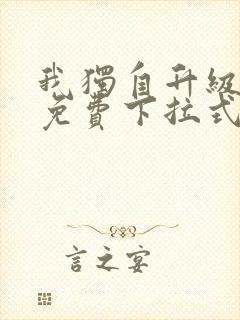 我獨自升級
免費下拉式
言之宴